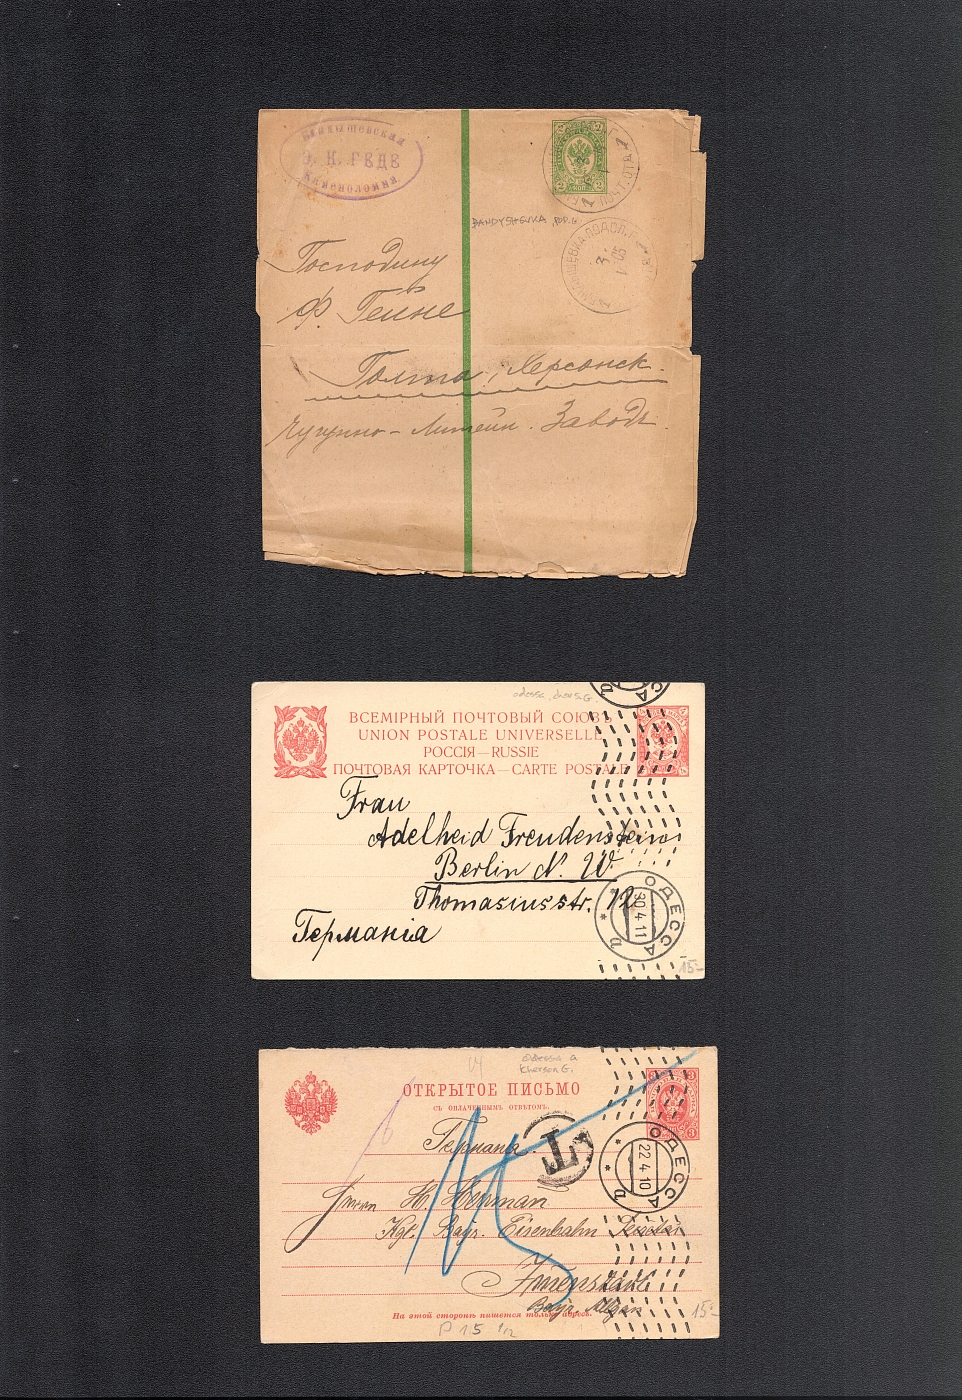 БАНДЫШЕВСКАЯ
Э. К. ГЕДЕ
2 2
2 2
BANDYSHEVKA POD. G
ПОДОЛ. Г.
3
05
Господину
Ф. Гейне
Голта, Херсонск.
Чугунно-Литейн. Заводъ.
odessa, cherson G.
ВСЕМІРНЫЙ ПОЧТОВЫЙ СОЮЗЪ
UNION POSTALE UNIVERSELLE
РОССІЯ—RUSSIE
ПОЧТОВАЯ КАРТОЧКА—CARTE POSTALE
Frau
Adelheid Freudenstein
Berlin N. W.
Thomasiusstr. 12
Германія
ОДЕССА
30.4.11
15-
Odessa a
Kherson G.
ОТКРЫТОЕ ПИСЬМО
СЪ ОПЛАЧЕННЫМЪ ОТВѢТОМЪ.
3 3
Германія.
T
ОДЕССА
22.4.10
Herrn H. Herman
Kgl. Bayr. Eisenbahn
Immenstadt
Bayr. Allgäu
На этой сторонѣ пишется только адресъ.
15-
P 15 1/2